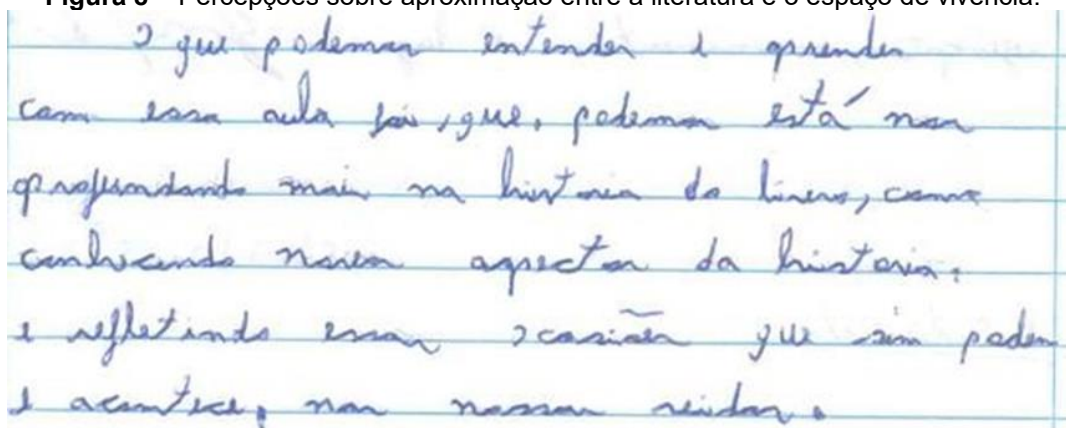 Figura 3 – Percepções sobre aproximação entre a literatura e o espaço de vivência.
O que podemos entender e aprender
com essa aula foi, que, podemos está nos
aprofundando mais na historia do livro, como
conhecendo novos aspectos da historia,
e refletindo essas ocasiões que sim podem
e acontece, nas nossas vidas.